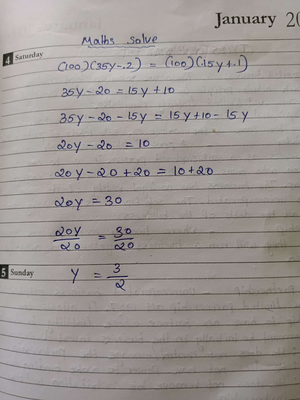 January 20
Maths Solve
4 Saturday
(100)(35y-.2) = (100)(.15y+.1)
35y-20 = 15y+10
35y-20-15y = 15y+10-15y
20y-20 = 10
20y-20+20 = 10+20
20y = 30
20y/20 = 30/20
5 Sunday
y = 3/2